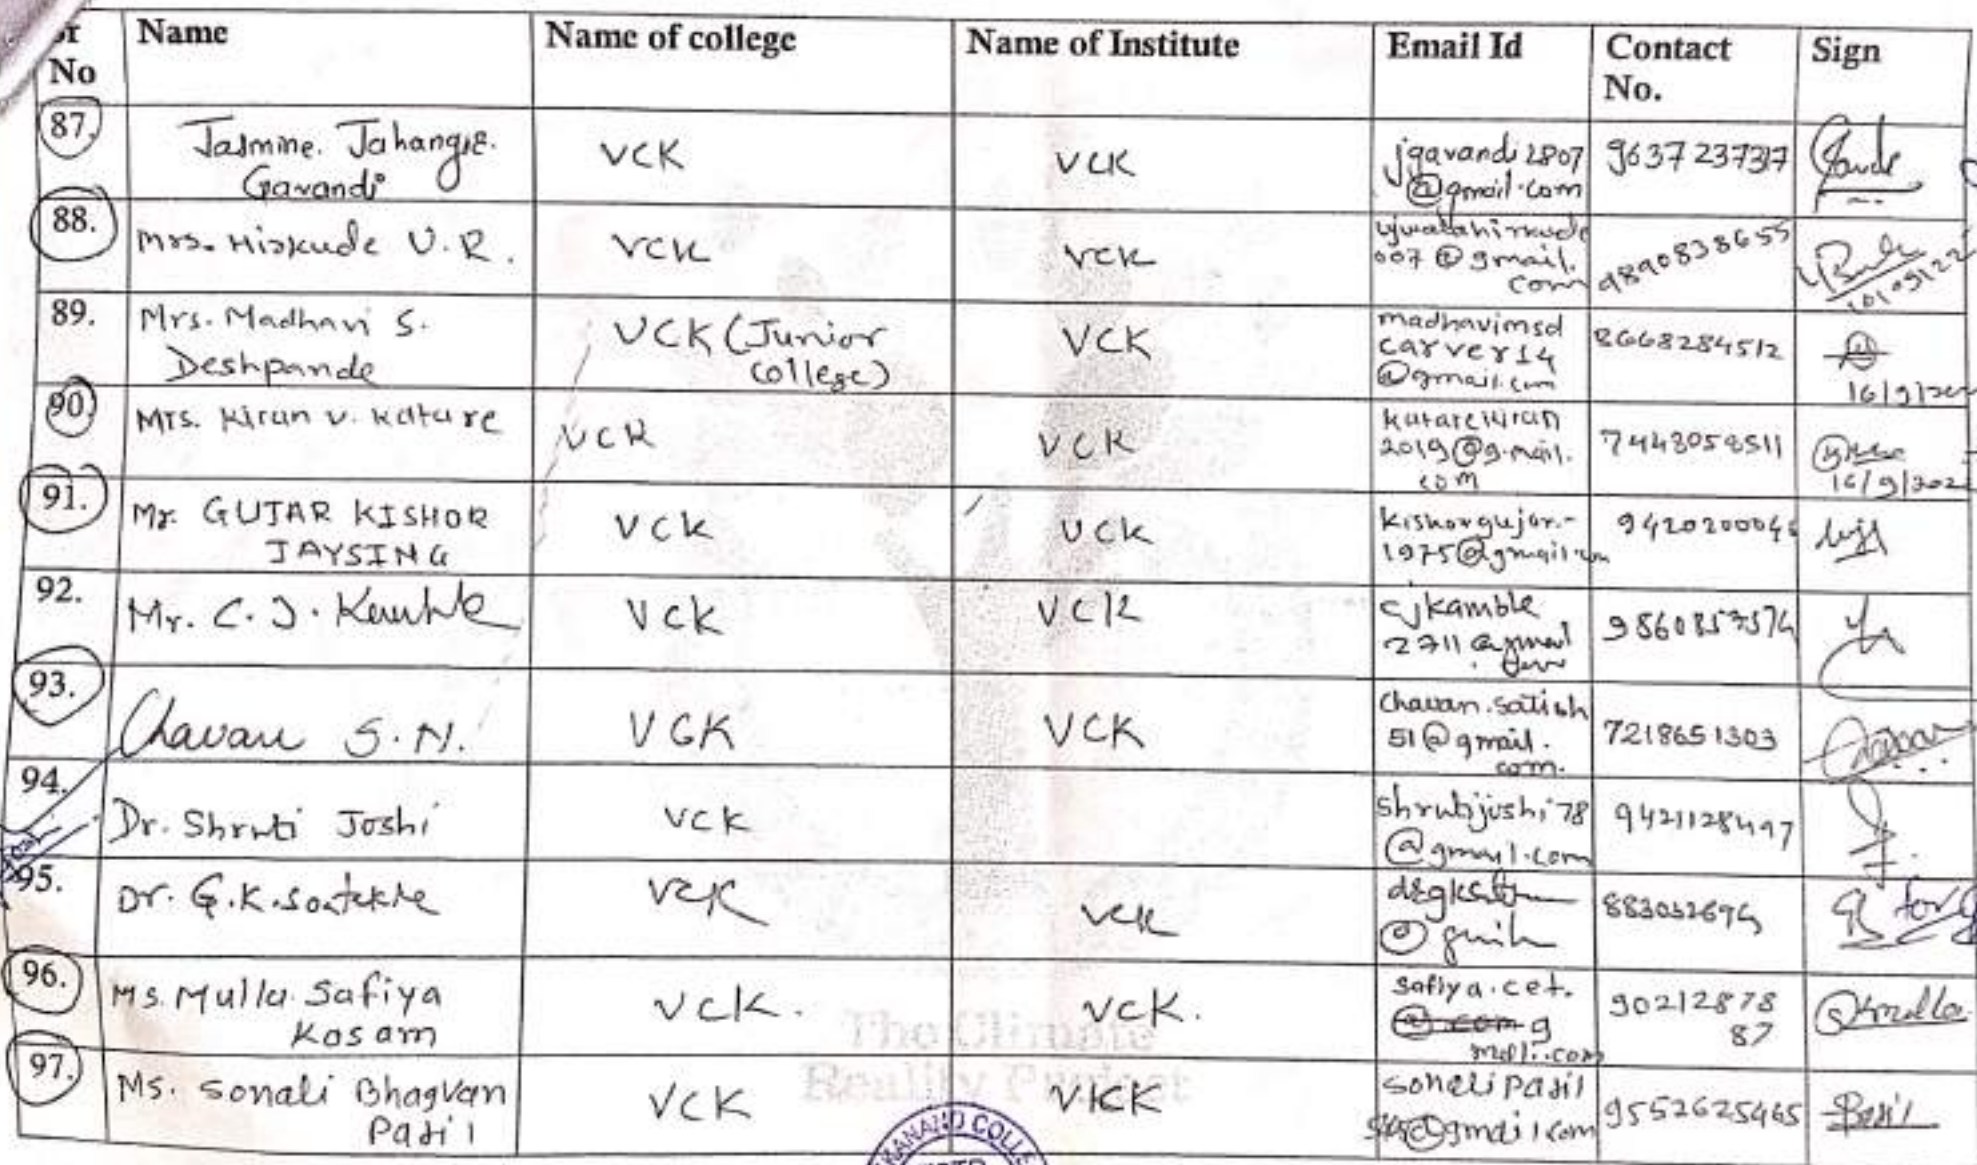 Sr No Name Name of college Name of Institute Email Id Contact No. Sign
87. Jasmine. Jahangir. Gavandi VCK VCK jgavandi2807 @gmail.com
88. Mrs. Hirkude U.R. VCK VCK ujwalahirkude 007 @gmail. com 9890838655
89. Mrs. Madhavi S. Deshpande VCK (Junior College) VCK madhavimsd carver14 @gmail.com 8668284512 16/9/
90. Mrs. Kiran V. Katare VCK VCK katarekiran 2019@g.mail. com 7443058511 16/9/202
91. Mr. GUJAR KISHOR JAYSING VCK VCK kishorgujar.- 1975@gmail.com
92. Mr. C. J. Kamble VCK VCK cjkamble 2711 @gmail
93. Chavan S.N. VCK VCK Chavan.Satish 51@gmail. com. 7218651303
94. Dr. Shruti Joshi VCK shrutijoshi78 @gmail.com 9421128497
95. Dr. G.K. VCK VCK
96. Ms. Mulla Safiya Kosam VCK. VCK. safiya.cet. g mail.com 90212878 87
97. Ms. Sonali Bhagvan Patil VCK VCK sonalipatil @gmail.com 9552625465 Patil
The Climate
Reality Project